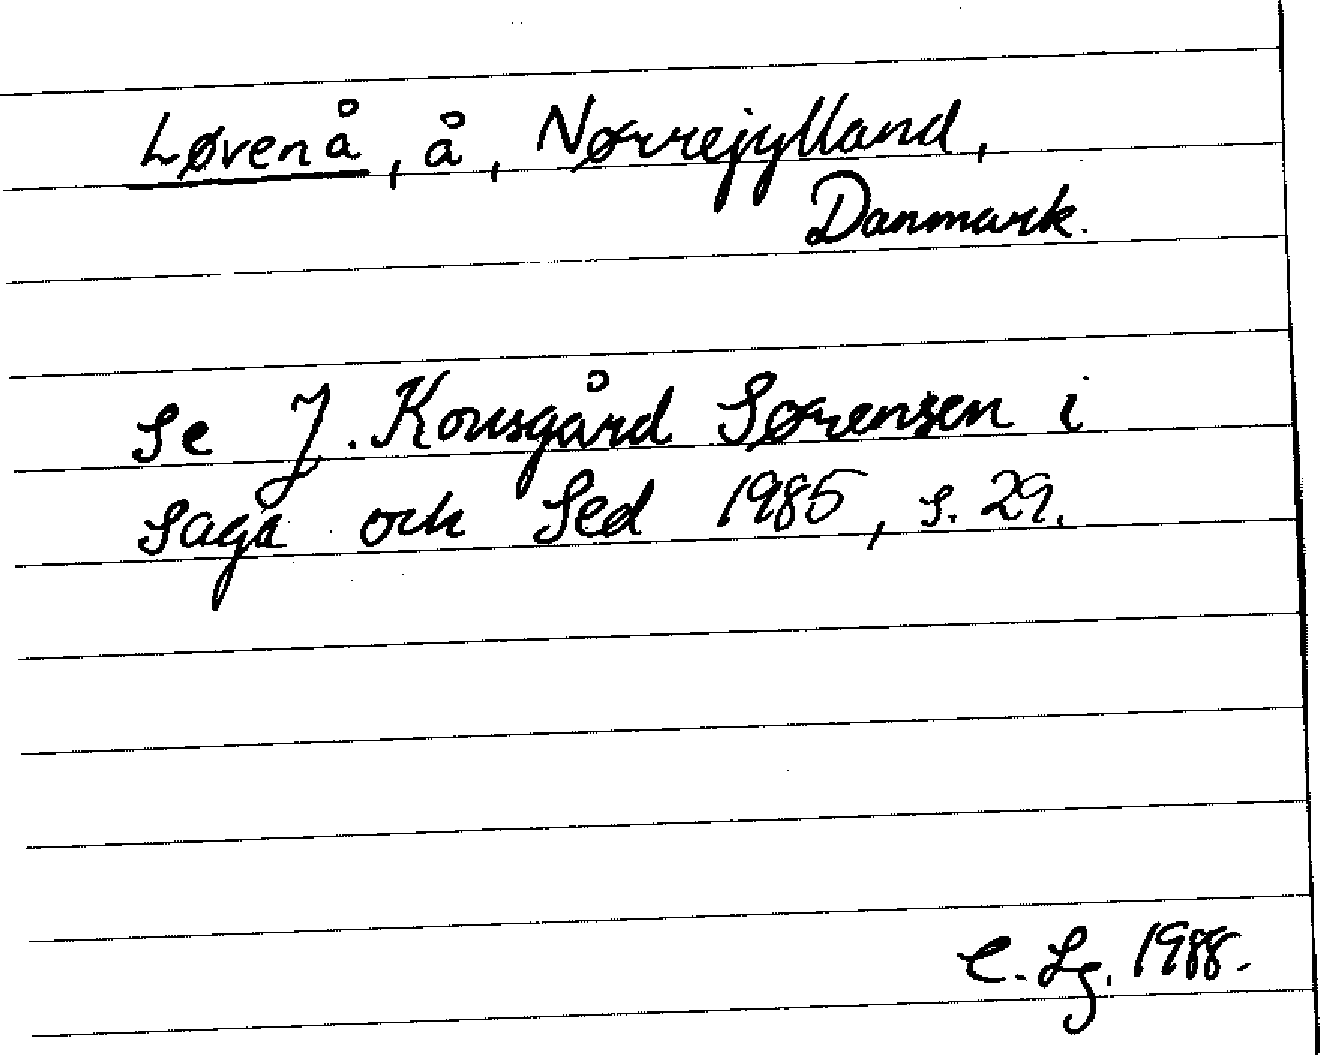 Løvenå, å, Nørrejylland,
Danmark.
Se J. Kousgård Sørensen i
Saga och Sed 1985, s. 29.
C. Lg. 1988.